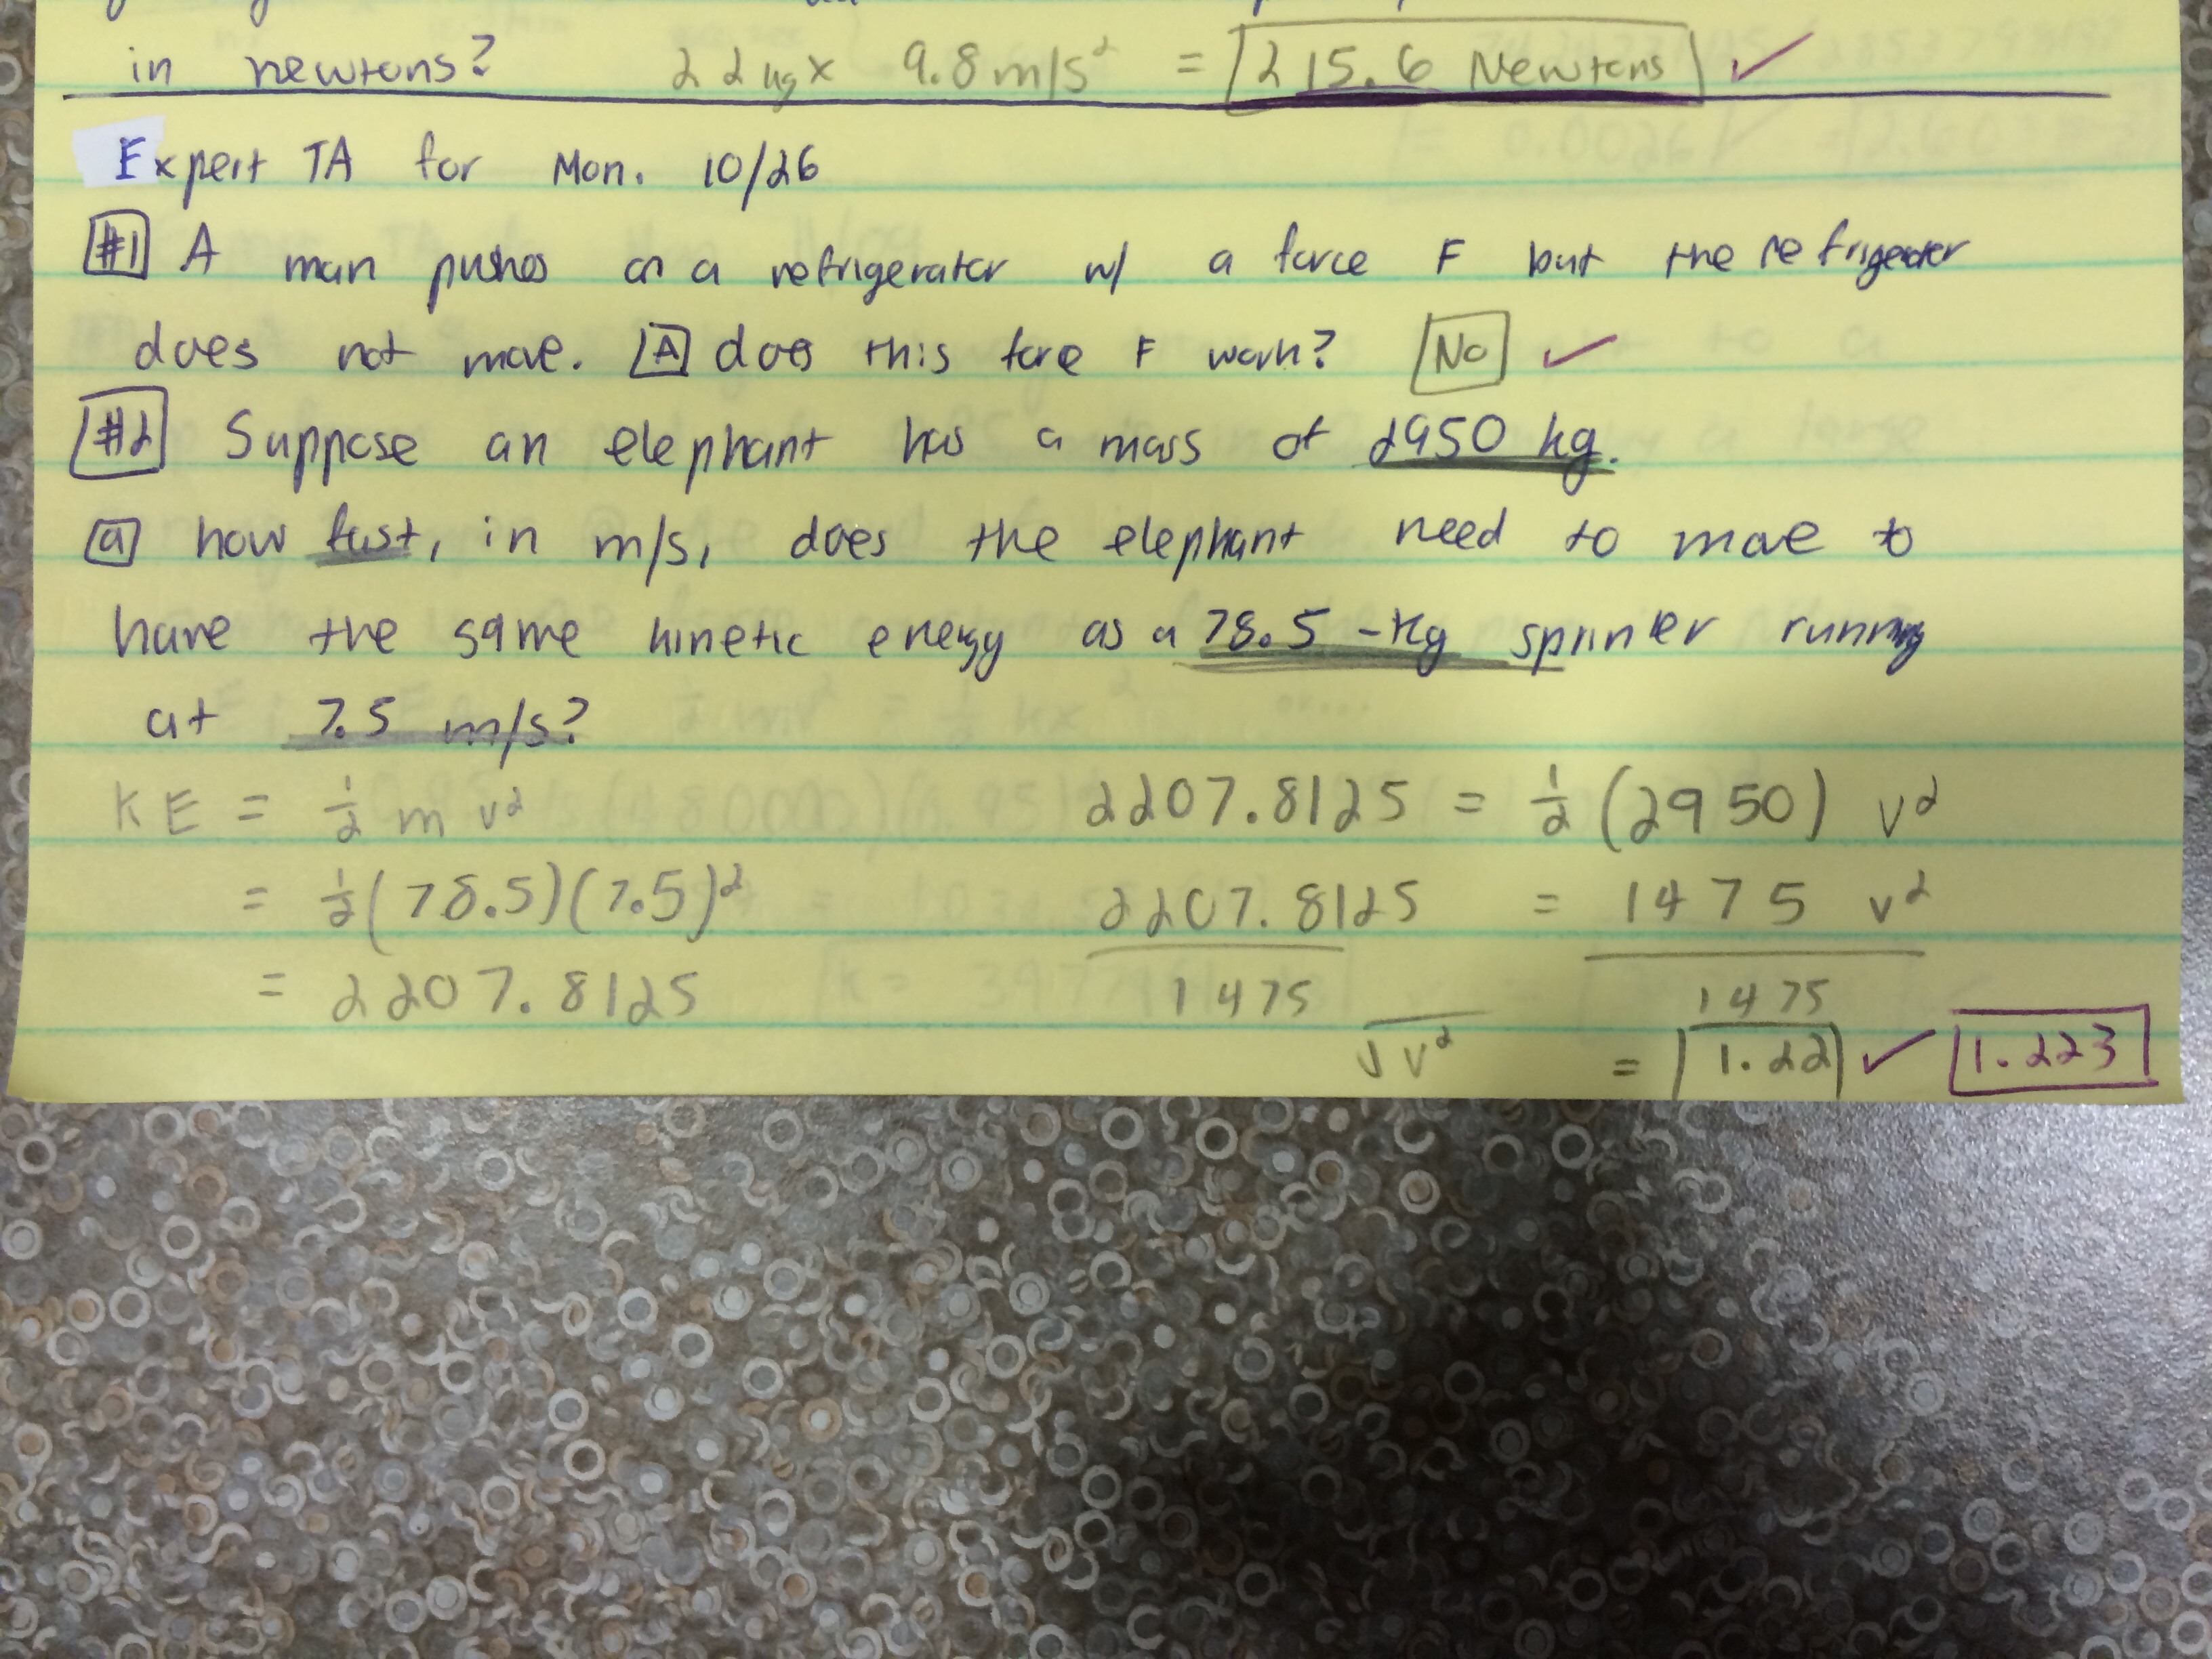 in newtons? 22 kg x 9.8 m/s² = 215.6 Newtons ✓
Expert TA for Mon. 10/26
#1 A man pushes on a refrigerator w/ a force F but the refrigerator
does not move. A does this force F work? No ✓
#2 Suppose an elephant has a mass of 2950 kg.
a how fast, in m/s, does the elephant need to move to
have the same kinetic energy as a 78.5-kg sprinter running
at 7.5 m/s?
KE = ½ m v² 2207.8125 = ½ (2950) v²
= ½(78.5)(7.5)² 2207.8125 = 1475 v²
= 2207.8125 1475 1475
√v² = 1.22 ✓ 1.223